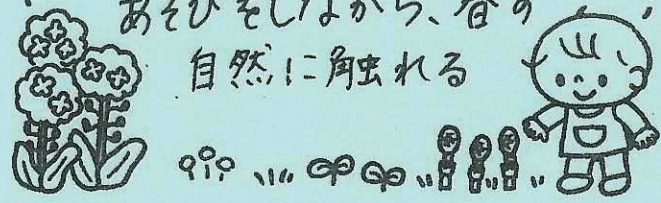 あそびをしながら、春の
自然に触れる